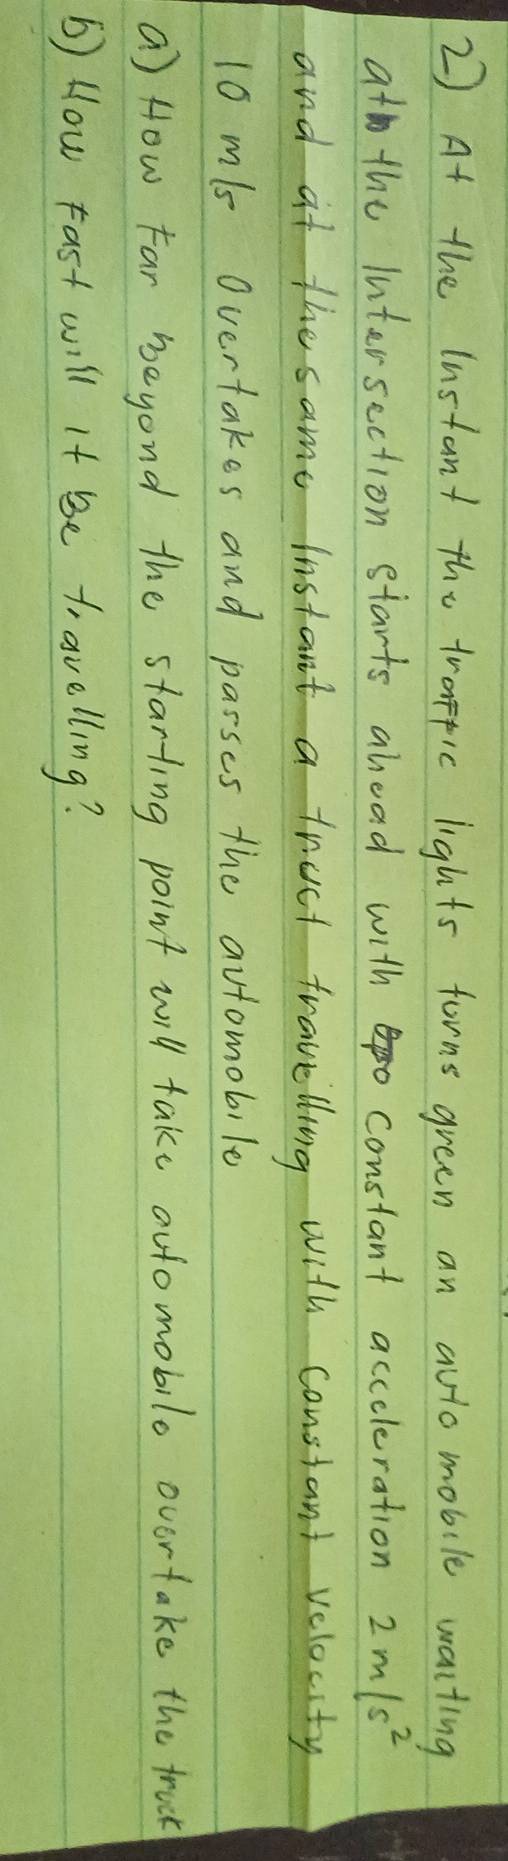 2) At the Instant the traffic lights turns green an automobile waiting
at the Intersection starts ahead with constant acceleration 2 m/s²
and at the same Instant a truct travelling with constant velocity
10 m/s Overtakes and passes the automobile
a) How Far beyond the starting point will take automobile overtake the truck
b) How Fast will it be travelling?